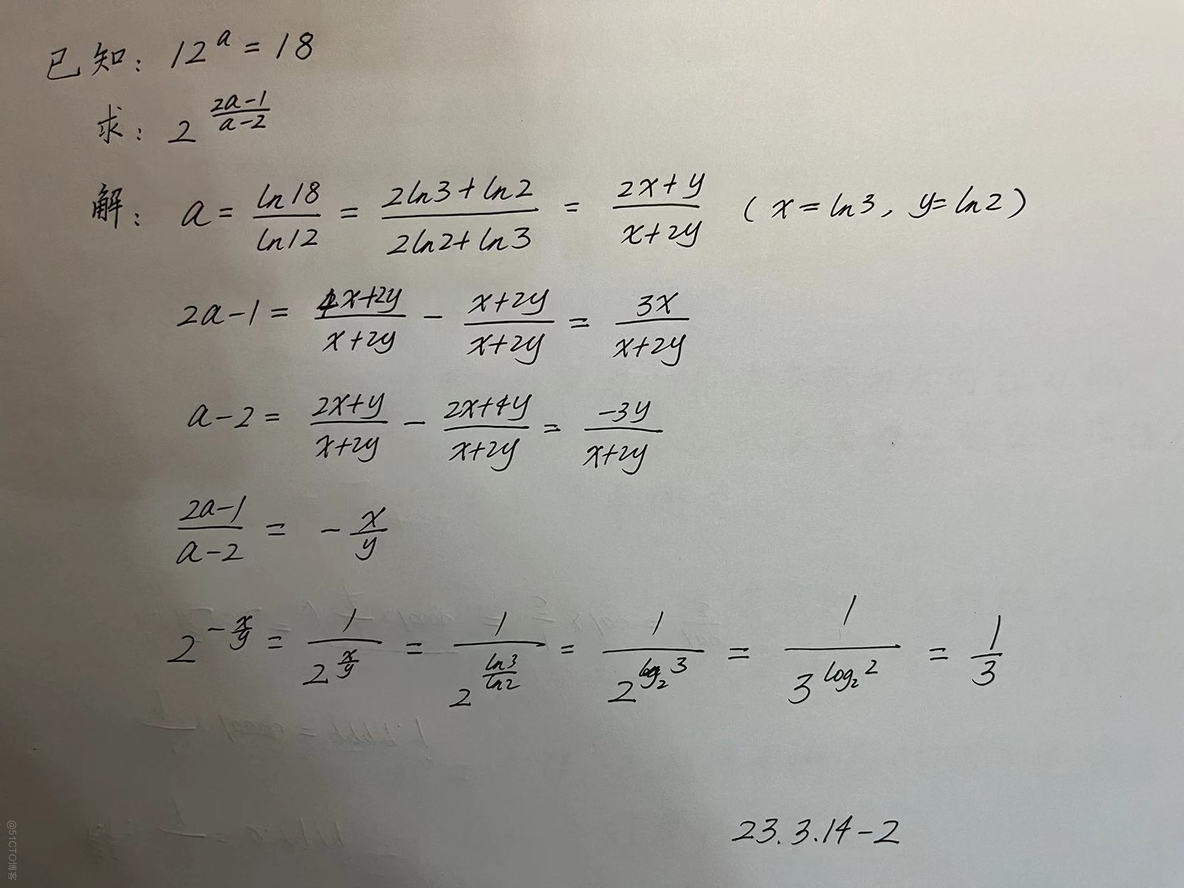 已知: 12^a = 18
求: 2^((2a-1)/(a-2))
解: a = ln18/ln12 = (2ln3+ln2)/(2ln2+ln3) = (2x+y)/(x+2y) (x=ln3, y=ln2)
2a-1 = (4x+2y)/(x+2y) - (x+2y)/(x+2y) = 3x/(x+2y)
a-2 = (2x+y)/(x+2y) - (2x+4y)/(x+2y) = -3y/(x+2y)
(2a-1)/(a-2) = -x/y
2^(-x/y) = 1/2^(x/y) = 1/2^(ln3/ln2) = 1/2^(log₂3) = 1/3^(log₂2) = 1/3
23.3.14-2
@51CTO博客